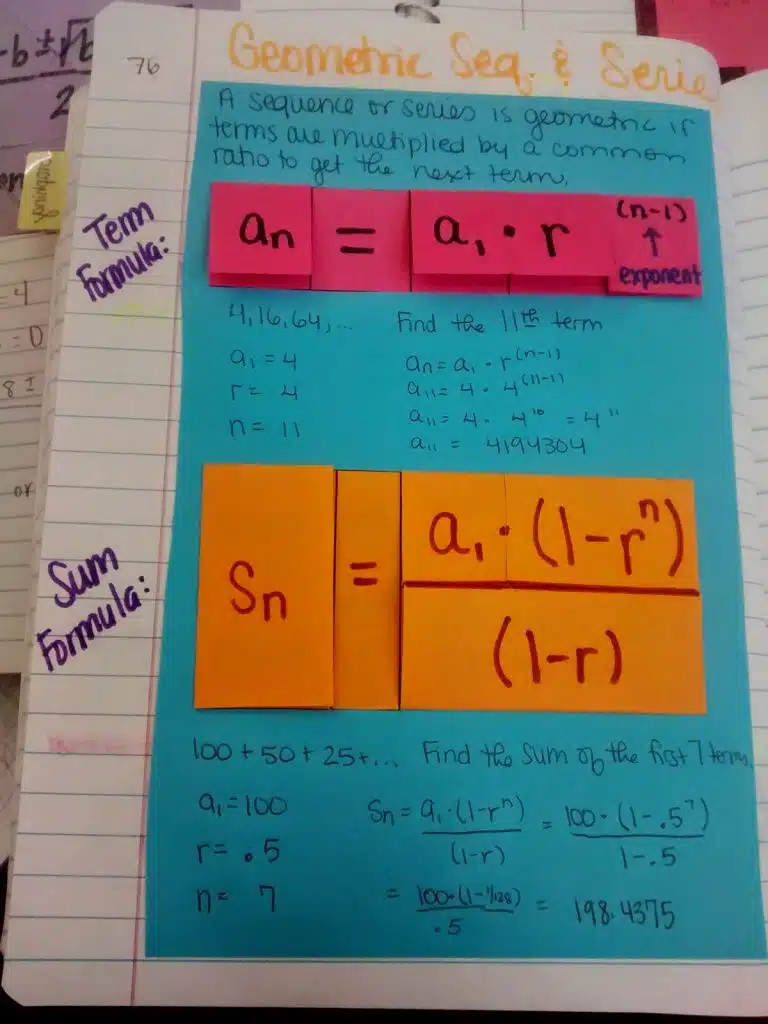 -b ± √b
2
76
Geometric Seq. & Serie
A sequence or series is geometric if
terms are multiplied by a common
ratio to get the next term.
Term
Formula:
an = a₁ · r (n-1)
↑
exponent
4, 16, 64, ... Find the 11th term
a₁ = 4 an = a₁ · r⁽ⁿ⁻¹⁾
r = 4 a₁₁ = 4 · 4⁽¹¹⁻¹⁾
n = 11 a₁₁ = 4 · 4¹⁰ = 4¹¹
a₁₁ = 4194304
= 4
= 0
8 ±
or
Sum
Formula:
Sn = a₁ · (1-rⁿ)
(1-r)
100 + 50 + 25 + ... Find the sum of the first 7 terms.
a₁ = 100 Sn = a₁ · (1-rⁿ) / (1-r) = 100 · (1-.5⁷) / 1-.5
r = .5
n = 7 = 100 · (1-1/128) / .5 = 198.4375